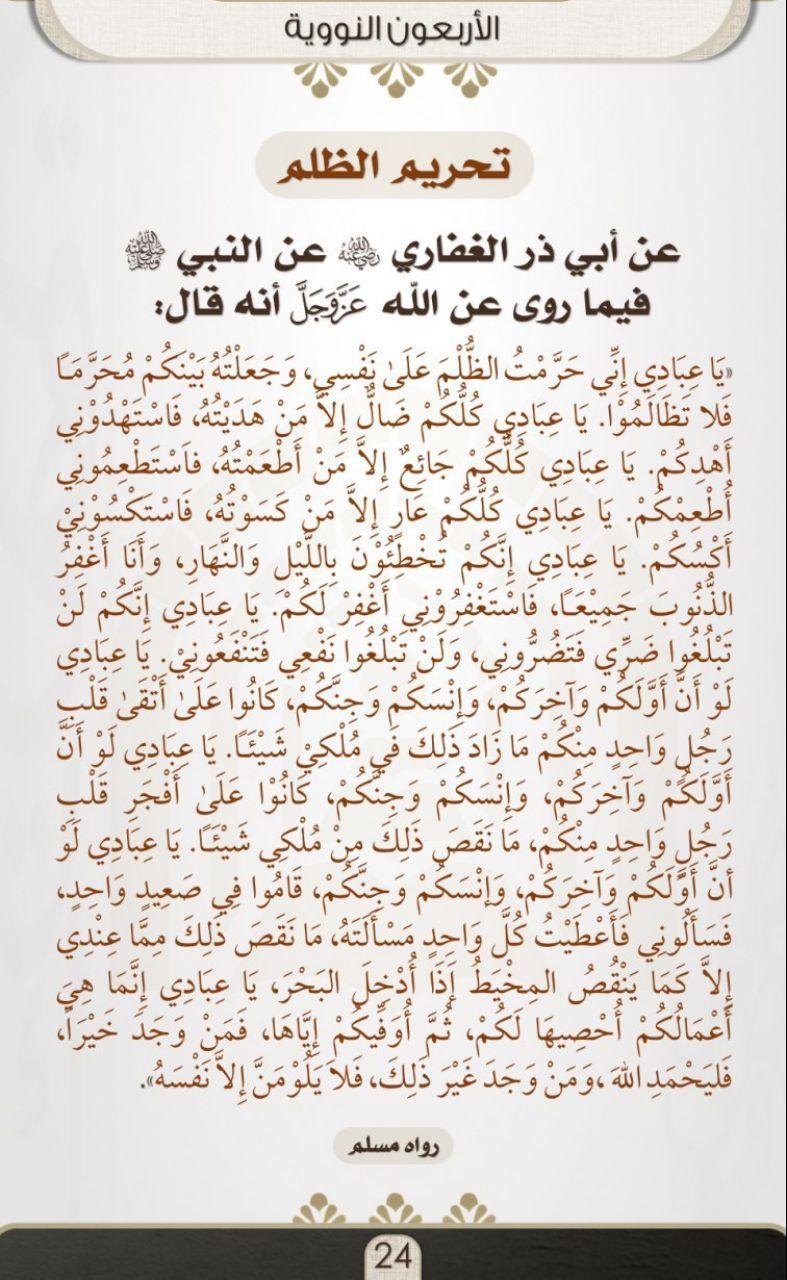 الأربعون النووية
تحريم الظلم
عن أبي ذر الغفاري رضي الله عنه عن النبي ﷺ
فيما روى عن الله عَزَّوَجَلَّ أنه قال:
«يَا عِبَادِي إِنِّي حَرَّمْتُ الظُّلْمَ عَلَىٰ نَفْسِي، وَجَعَلْتُهُ بَيْنَكُمْ مُحَرَّمَاً
فَلا تَظَالَمُوْا. يَا عِبَادِي كُلُّكُمْ ضَالٌّ إِلاَّ مَنْ هَدَيْتُهُ، فَاسْتَهْدُوْنِي
أَهْدِكُمْ. يَا عِبَادِي كُلُّكُمْ جَائِعٌ إِلاَّ مَنْ أَطْعَمْتُهُ، فاَسْتَطْعِمُونِي
أُطْعِمْكُمْ. يَا عِبَادِي كُلُّكُمْ عَارٍ إِلاَّ مَنْ كَسَوْتُهُ، فَاسْتَكْسُوْنِيْ
أَكْسُكُمْ. يَا عِبَادِي إِنَّكُمْ تُخْطِئُوْنَ بِاللَّيْلِ وَالنَّهَارِ، وَأَنَا أَغْفِرُ
الذُّنُوبَ جَمِيْعَاً، فَاسْتَغْفِرُوْنِي أَغْفِرْ لَكُمْ. يَا عِبَادِي إِنَّكُمْ لَنْ
تَبْلُغُوا ضَرِّي فَتَضُرُّونِي، وَلَنْ تَبْلُغُوا نَفْعِي فَتَنْفَعُونِيْ. يَا عِبَادِي
لَوْ أَنَّ أَوَّلَكُمْ وَآخِرَكُمْ، وَإِنْسَكُمْ وَجِنَّكُمْ، كَانُوا عَلَىٰ أَتْقَىٰ قَلْبِ
رَجُلٍ وَاحِدٍ مِنْكُمْ مَا زَادَ ذَلِكَ فَي مُلْكِيْ شَيْئَاً. يَا عِبَادِي لَوْ أَنَّ
أَوَّلَكُمْ وَآخِرَكُمْ، وَإِنْسَكُمْ وَجِنَّكُمْ، كَانُوْا عَلَىٰ أَفْجَرِ قَلْبِ
رَجُلٍ وَاحِدٍ مِنْكُمْ، مَا نَقَصَ ذَلِكَ مِنْ مُلْكِي شَيْئَاً. يَا عِبَادِي لَوْ
أنَّ أَوَّلَكُمْ وَآخِرَكُمْ، وَإنْسَكُمْ وَجِنَّكُمْ، قَامُوا فِي صَعِيدٍ وَاحِدٍ،
فَسَأَلُونِي فَأَعْطَيْتُ كُلَّ وَاحِدٍ مَسْأَلَتَهُ، مَا نَقَصَ ذَلِكَ مِمَّا عِنْدِي
إِلاَّ كَمَا يَنْقُصُ المِخْيَطُ إِذَا أُدْخِلَ البَحْرَ، يَا عِبَادِي إِنَّمَا هِيَ
أَعْمَالُكُمْ أُحْصِيهَا لَكُمْ، ثُمَّ أُوَفِّيكُمْ إِيَّاهَا، فَمَنْ وَجَدَ خَيْرَاً،
فَليَحْمَدِ اللهَ، وَمَنْ وَجَدَ غَيْرَ ذَلِكَ، فَلاَ يَلُوْمَنَّ إِلاَّ نَفْسَهُ».
رواه مسلم
24